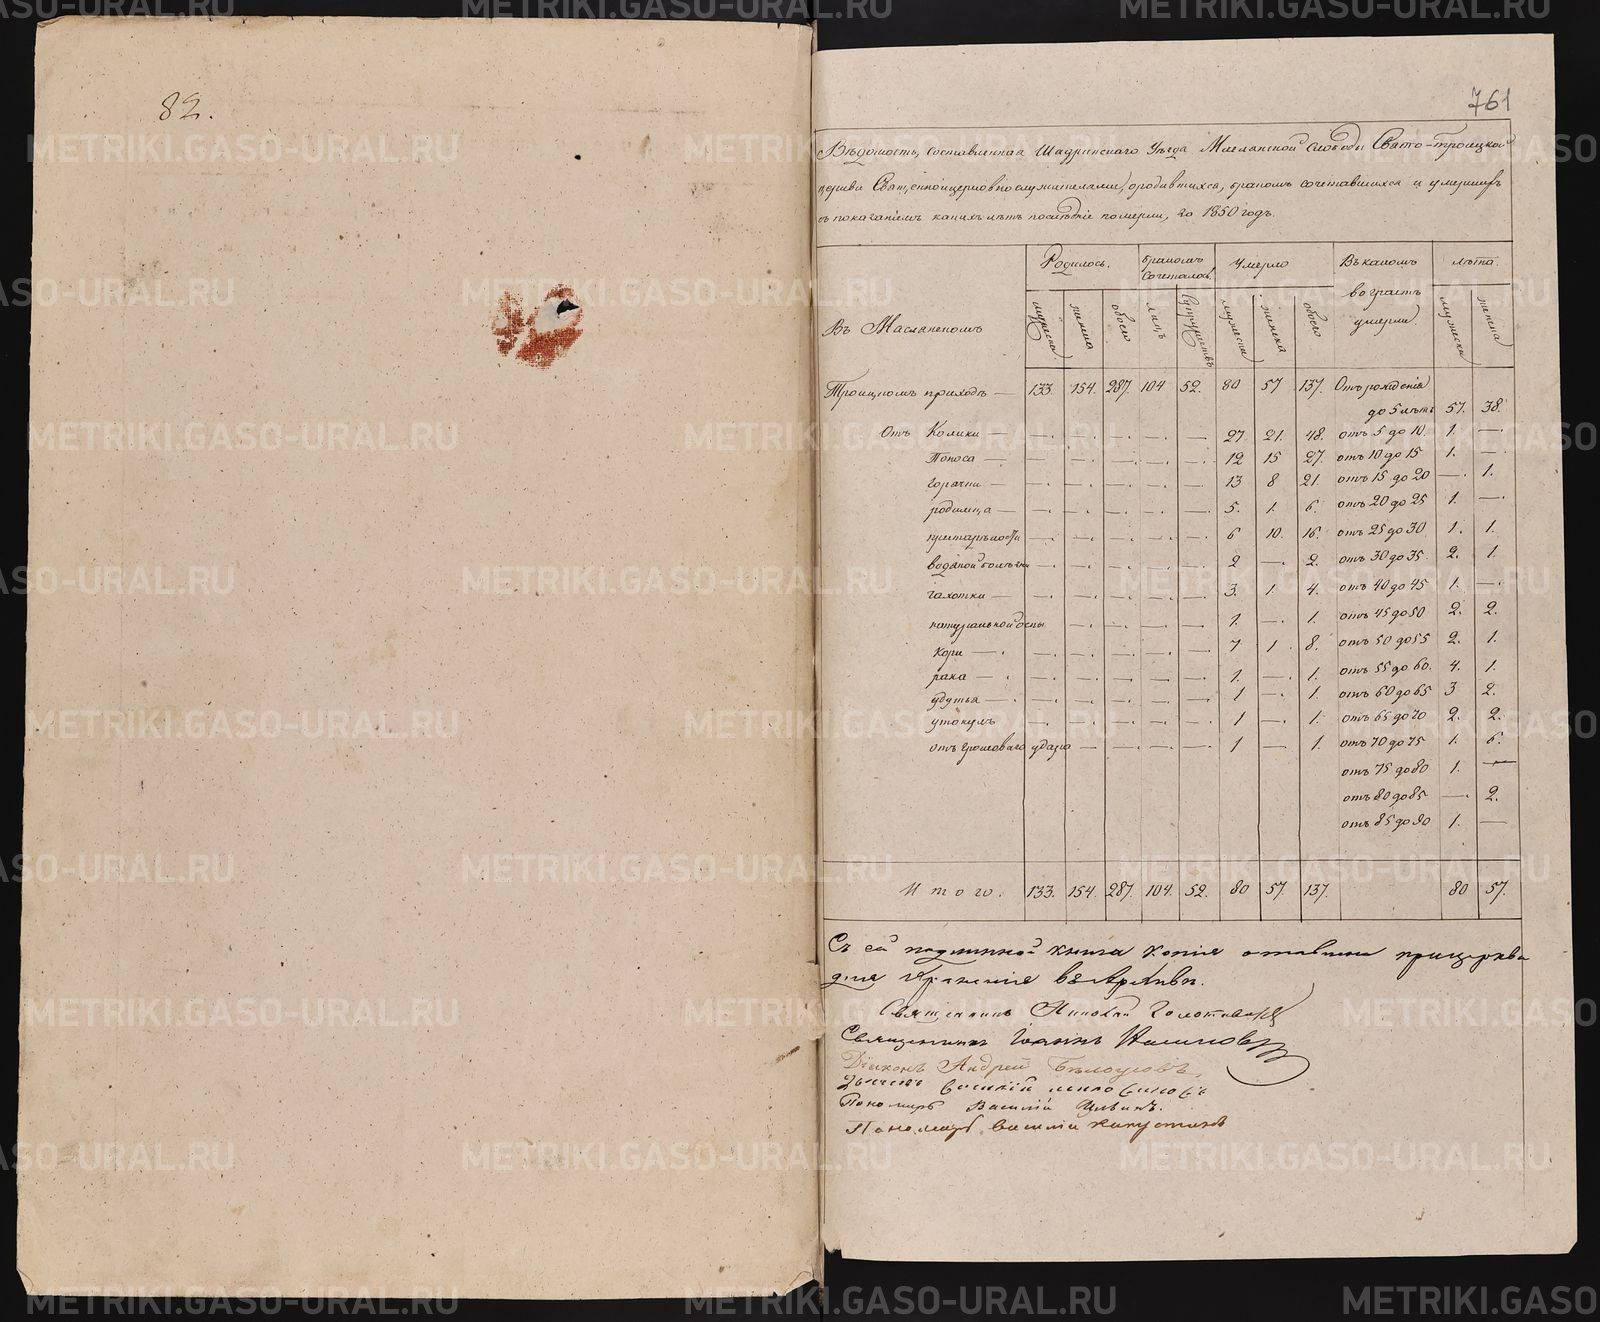 82.
761
Вѣдомость, составленная Шадринскаго Уѣзда Маслянской слободы Свято-Троицкой
церкви Священноцерковнослужителями, о родившихся, бракомъ сочетавшихся и умершихъ
съ показаніемъ какихъ лѣтъ послѣдніе померли, за 1850 годъ.
Родилось. Бракомъ Сочеталось. Умерло Въ какомъ возрастѣ умерли лѣта.
мужеска женска обоего лицъ супружествъ мужеска женска обоего мужеска женска
Въ Маслянскомъ
Троицкомъ приходѣ — 133. 154. 287. 104 52. 80 57 137. Отъ рожденія
до 5 лѣтъ 57. 38.
Отъ Колики — —. —. —. —. — 27 21. 48. отъ 5 до 10. 1. —.
Поноса — — —. —. —. —. 12 15 27. отъ 10 до 15 1. —.
горячки — —. —. —. —. —. 13 8 21. отъ 15 до 20 —. 1.
родимца — —. —. —. —. —. 5. 1. 6. отъ 20 до 25 1. —.
престарѣлости —. —. —. —. —. 6 10. 16. отъ 25 до 30 1. 1.
водяной болѣзни —. —. —. —. —. 2 —. 2. отъ 30 до 35. 2. 1.
чахотки — —. —. —. —. —. 3. 1. 4. отъ 40 до 45 1. —.
натуральной оспы —. —. —. —. 1. —. 1. отъ 45 до 50 2. 2.
Кори —. —. —. —. —. —. 7 1. 8. отъ 50 до 55 2. 1.
рака —. —. —. —. —. —. 1. —. 1. отъ 55 до 60. 4. 1.
удутья —. —. —. —. —. —. 1 —. 1. отъ 60 до 65 3 2.
утонулъ —. —. —. —. —. 1 —. 1. отъ 65 до 70 2. 2.
отъ громоваго удара — —. —. —. 1 — 1. отъ 70 до 75 1. 6.
отъ 75 до 80 1. —
отъ 80 до 85 —. 2.
отъ 85 до 90 1. —
Итого. 133. 154. 287. 104. 52. 80 57. 137. 80 57.
Съ сей подлинной книги копія оставлена при церкви
для храненія въ Архивѣ.
Священникъ Николай
Священникъ Іоаннъ
Діаконъ Андрей Бѣлоусовъ,
Дьячекъ Василій
Пономарь Василій Ильинъ.
Пономарь Василій Капустинъ
METRIKI.GASO-URAL.RU